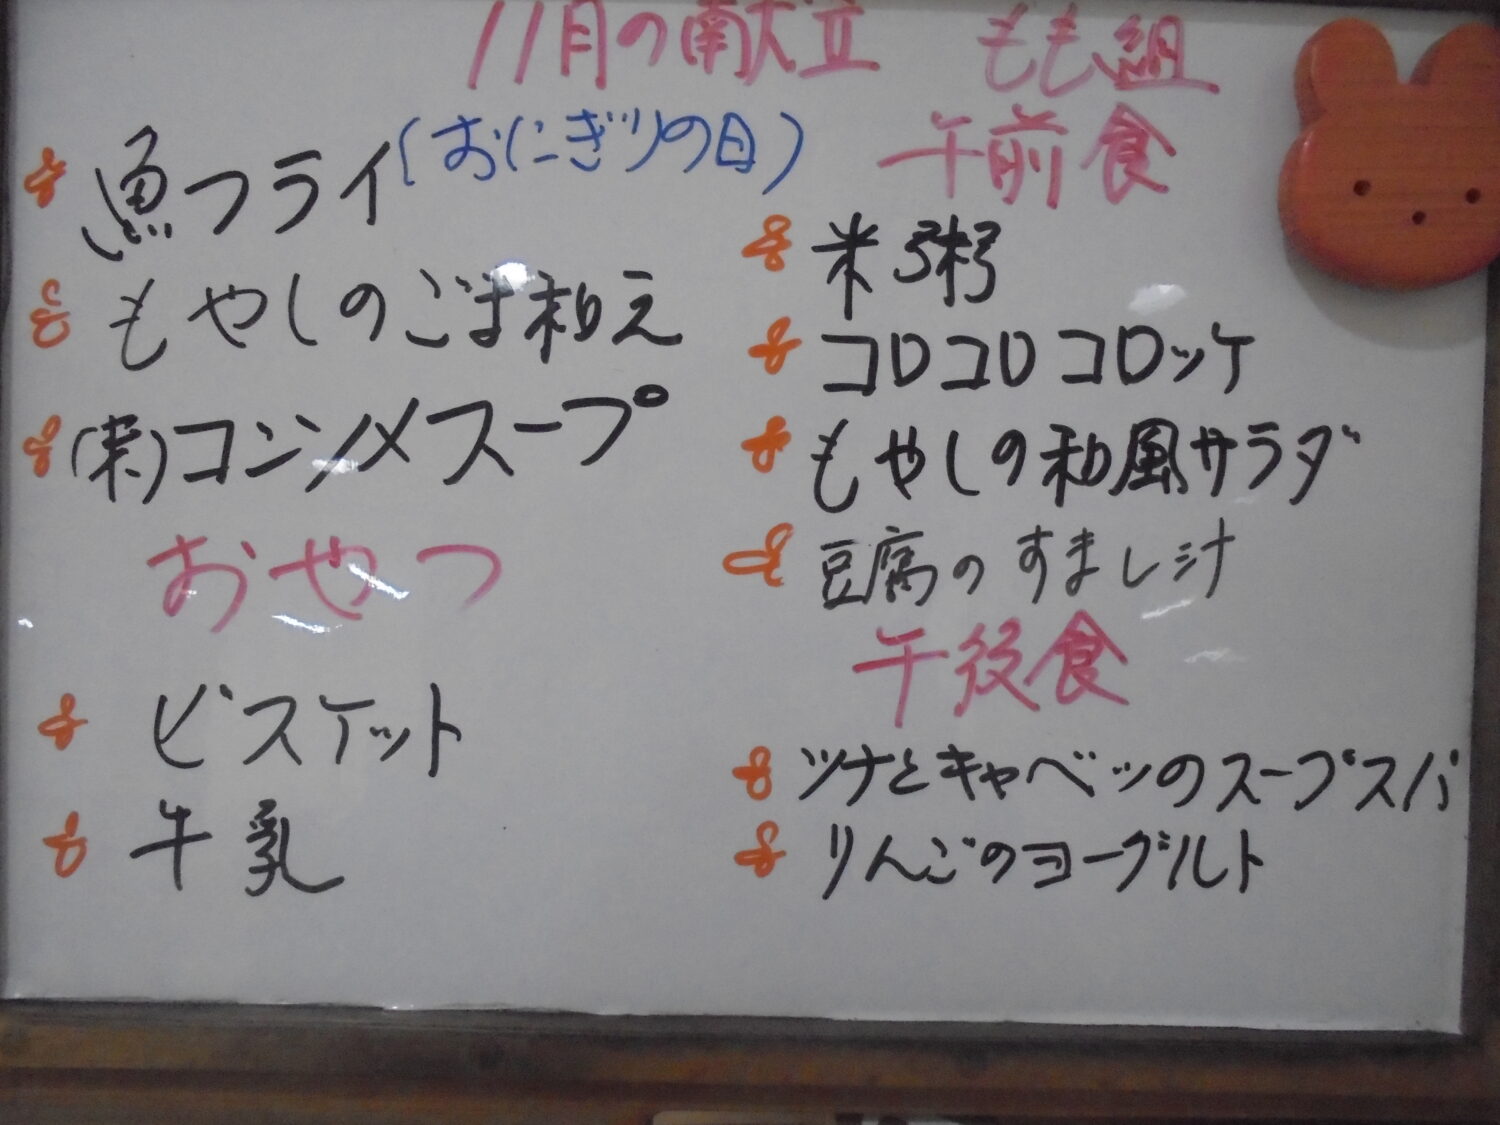 11月の献立　もも組
魚フライ(おにぎりの日)
もやしのごま和え
コンソメスープ
おやつ
ビスケット
牛乳
午前食
米粥
コロコロコロッケ
もやしの和風サラダ
豆腐のすまし汁
午後食
ツナとキャベツのスープスパ
りんごのヨーグルト